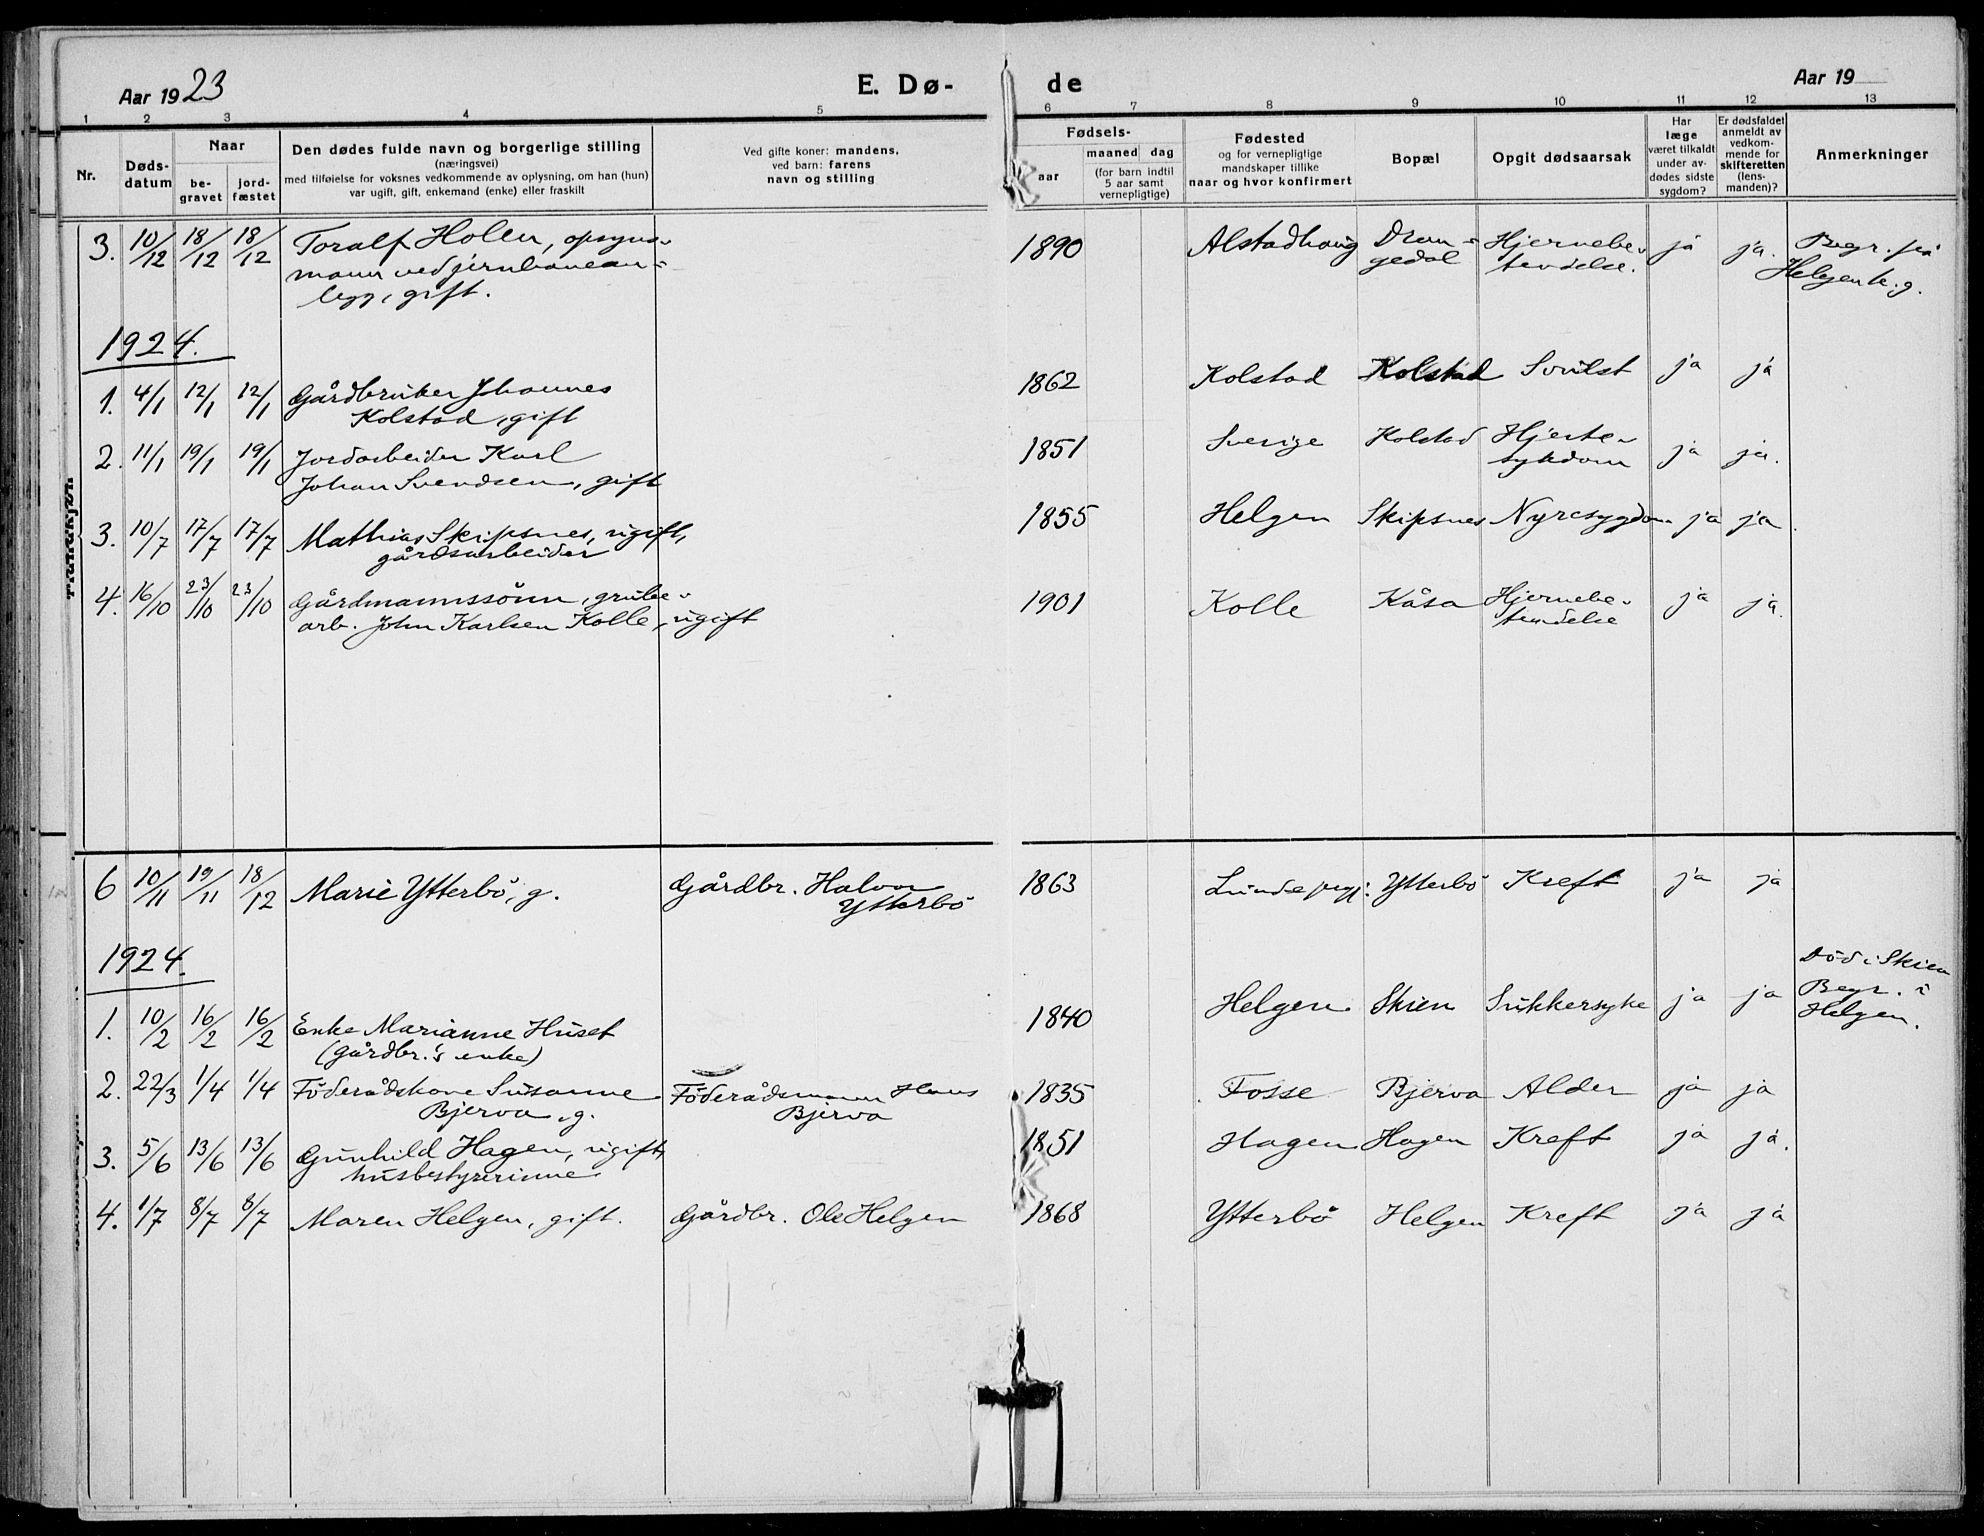 Aar 1923
E. Dø-
de
Aar 19
1 2 3 4 5 6 7 8 9 10 11 12 13
Nr.
Døds-
datum
Naar
be-
gravet
jord-
fæstet
Den dødes fulde navn og borgerlige stilling
(næringsvei)
med tilføielse for voksnes vedkommende av oplysning, om han (hun)
var ugift, gift, enkemand (enke) eller fraskilt
Ved gifte koner: mandens,
ved barn: farens
navn og stilling
Fødsels-
aar
maaned dag
(for barn indtil
5 aar samt
vernepligtige)
Fødested
og for vernepligtige
mandskaper tillike
naar og hvor konfirmert
Bopæl
Opgit dødsaarsak
Har
læge
været tilkaldt
under av-
dødes sidste
sygdom?
Er dødsfaldet
anmeldt av
vedkom-
mende for
skifteretten
(lens-
manden)?
Anmerkninger
3. 10/12 18/12 18/12 Toralf Holen, opsyns- 1890 Alstadhoug Dran- Hjernebe- ja ja. Begr. på
mann ved jernbanean- gedal tendelse. Helgen k.g.
legg, gift.
1924.
1. 4/1 12/1 12/1 Gårdbruker Johannes 1862 Kolstad Kolstad Svulst ja ja
Kolstad, gift
2. 11/1 19/1 19/1 Jordarbeider Karl 1851 Sverige Kolstad Hjerte- ja ja.
Johan Svendsen, gift sykdom
3. 10/7 17/7 17/7 Mathias Skipsnes, ugift, 1855 Helgen Skipsnes Nyresygdom ja ja.
gårdsarbeider
4. 16/10 23/10 23/10 Gårdmannssønn, grube- 1901 Kolle Kåsa Hjernebe- ja ja.
arb. John Karlsen Kolle, ugift tendelse
6 10/11 19/11 18/12 Marie Ytterbö, g. Gårdbr. Halvor 1863 Lunde prgj. Ytterbö Kreft ja ja
Ytterbö
1924.
Död i Skien
1. 10/2 16/2 16/2 Enke Marianne Huset 1840 Helgen Skien Sukkersyke ja ja Begr. i
(gårdbr.'s enke) Helgen.
2. 22/3 1/4 1/4 Föderådskone Susanne Föderådsmann Hans 1835 Fosse Bjerva Alder ja ja
Bjerva, g. Bjerva
3. 5/6 13/6 13/6 Gunhild Hagen, ugift, 1851 Hagen Hagen Kreft ja ja.
husbestyrerinne
4. 1/7 8/7 8/7 Maren Helgen, gift. Gårdbr. Ole Helgen 1868 Ytterbö Helgen Kreft ja ja